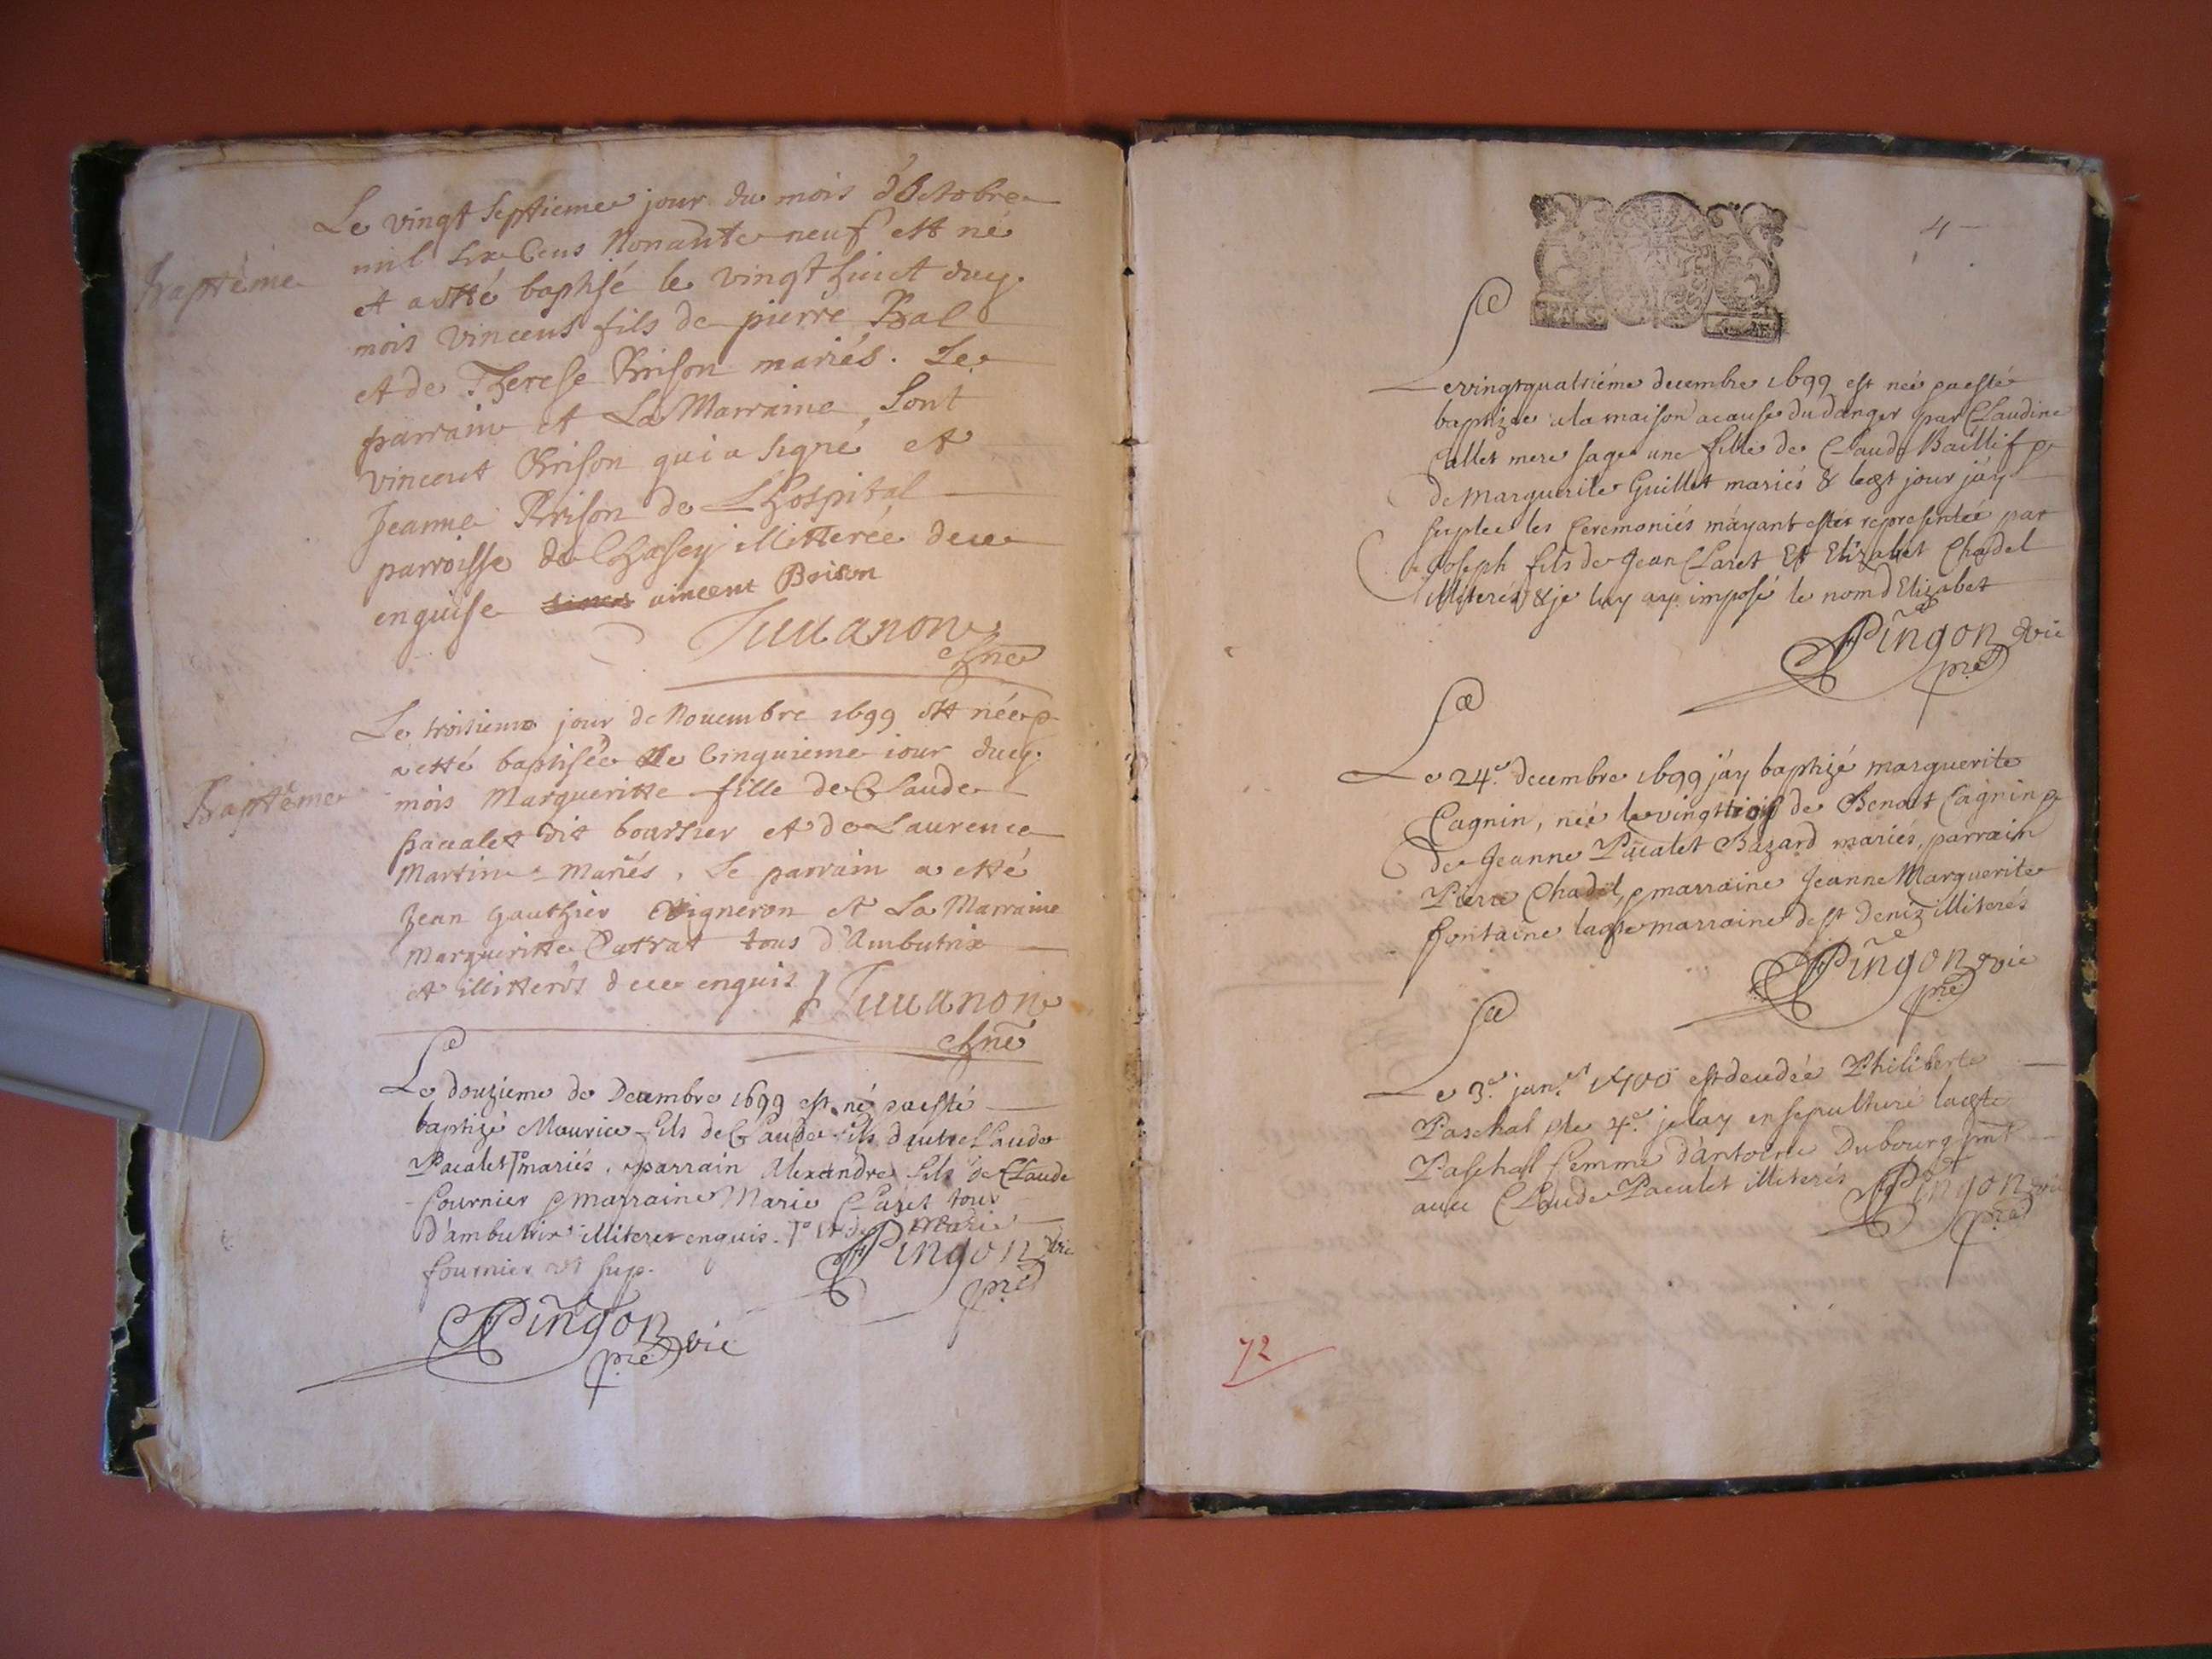 Le vingt septieme jour du mois d'Octobre
mil six Cens Nonante neuf est né
Baptême
et a esté baptisé le vingt huict duy.
mois Vincent fils de pierre Bal
et de Therese Brison mariés. Le
parrain et La Marraine Sont
Vincent Brison qui a signé et
Jeanne Brison de L'hospital
parroisse de Chasey illitterée deue
enquise vincent Brison
Juuanon
Le troisieme jour de Nouembre 1699 est née &
a etté baptisée le Cinquieme iour duy.
Baptême
mois Margueritte fille de Claude
pacalet dit bourssier et de Laurence
Martin mariés, Le parrain a etté
Jean Gauthier Vigneron et La Marraine
Margueritte Cutrat tous d'Ambutrix
et illitterés deue enquis Juuanon
Le douzieme de Decembre 1699 est né & a esté
baptizé Maurice fils de Claude fils d'autre Claude
Pacalet mariés, parrain Alexandre fils de Claude
fournier & marraine Marie Claret tous
d'ambutrix illiteres enquis. et de Marie
Pingon vic
fournier vt sup.
pre
Pingon vic
pre
4
Le vingtquatriéme decembre 1699 est neé & a esté
baptizée a la maison a cause du danger par Claudine
Callet mere sage une fille de Claude Baillif &
de Marguerite Guillet mariés & led jour j'ay
suplee les Ceremoniés m'ayant estée representée par
Joseph fils de Jean Claret Et Elizabet Chadel
illiterés & je luy ay imposé le nom d'Elizabet
Pingon vic
pre
Le 24.e decembre 1699 j'ay baptizé marguerite
Cagnin, neé le vingttrois de Benoit Cagnin &
de Jeanne Pacalet Bazard mariés, parrain
Pierre Chadel, & marraine Jeanne Marguerite
fontaine lad marraine de st deniz illiterés
Pingon vic
pre
Le 3.e janer 1700 est decedée Philiberte
Paschal & le 4.e je lay ensepulturé ladte
Paschal femme d'antoine Dubourg pnt
auec Claude Pacalet illiterés
Pingon vic
pre
72